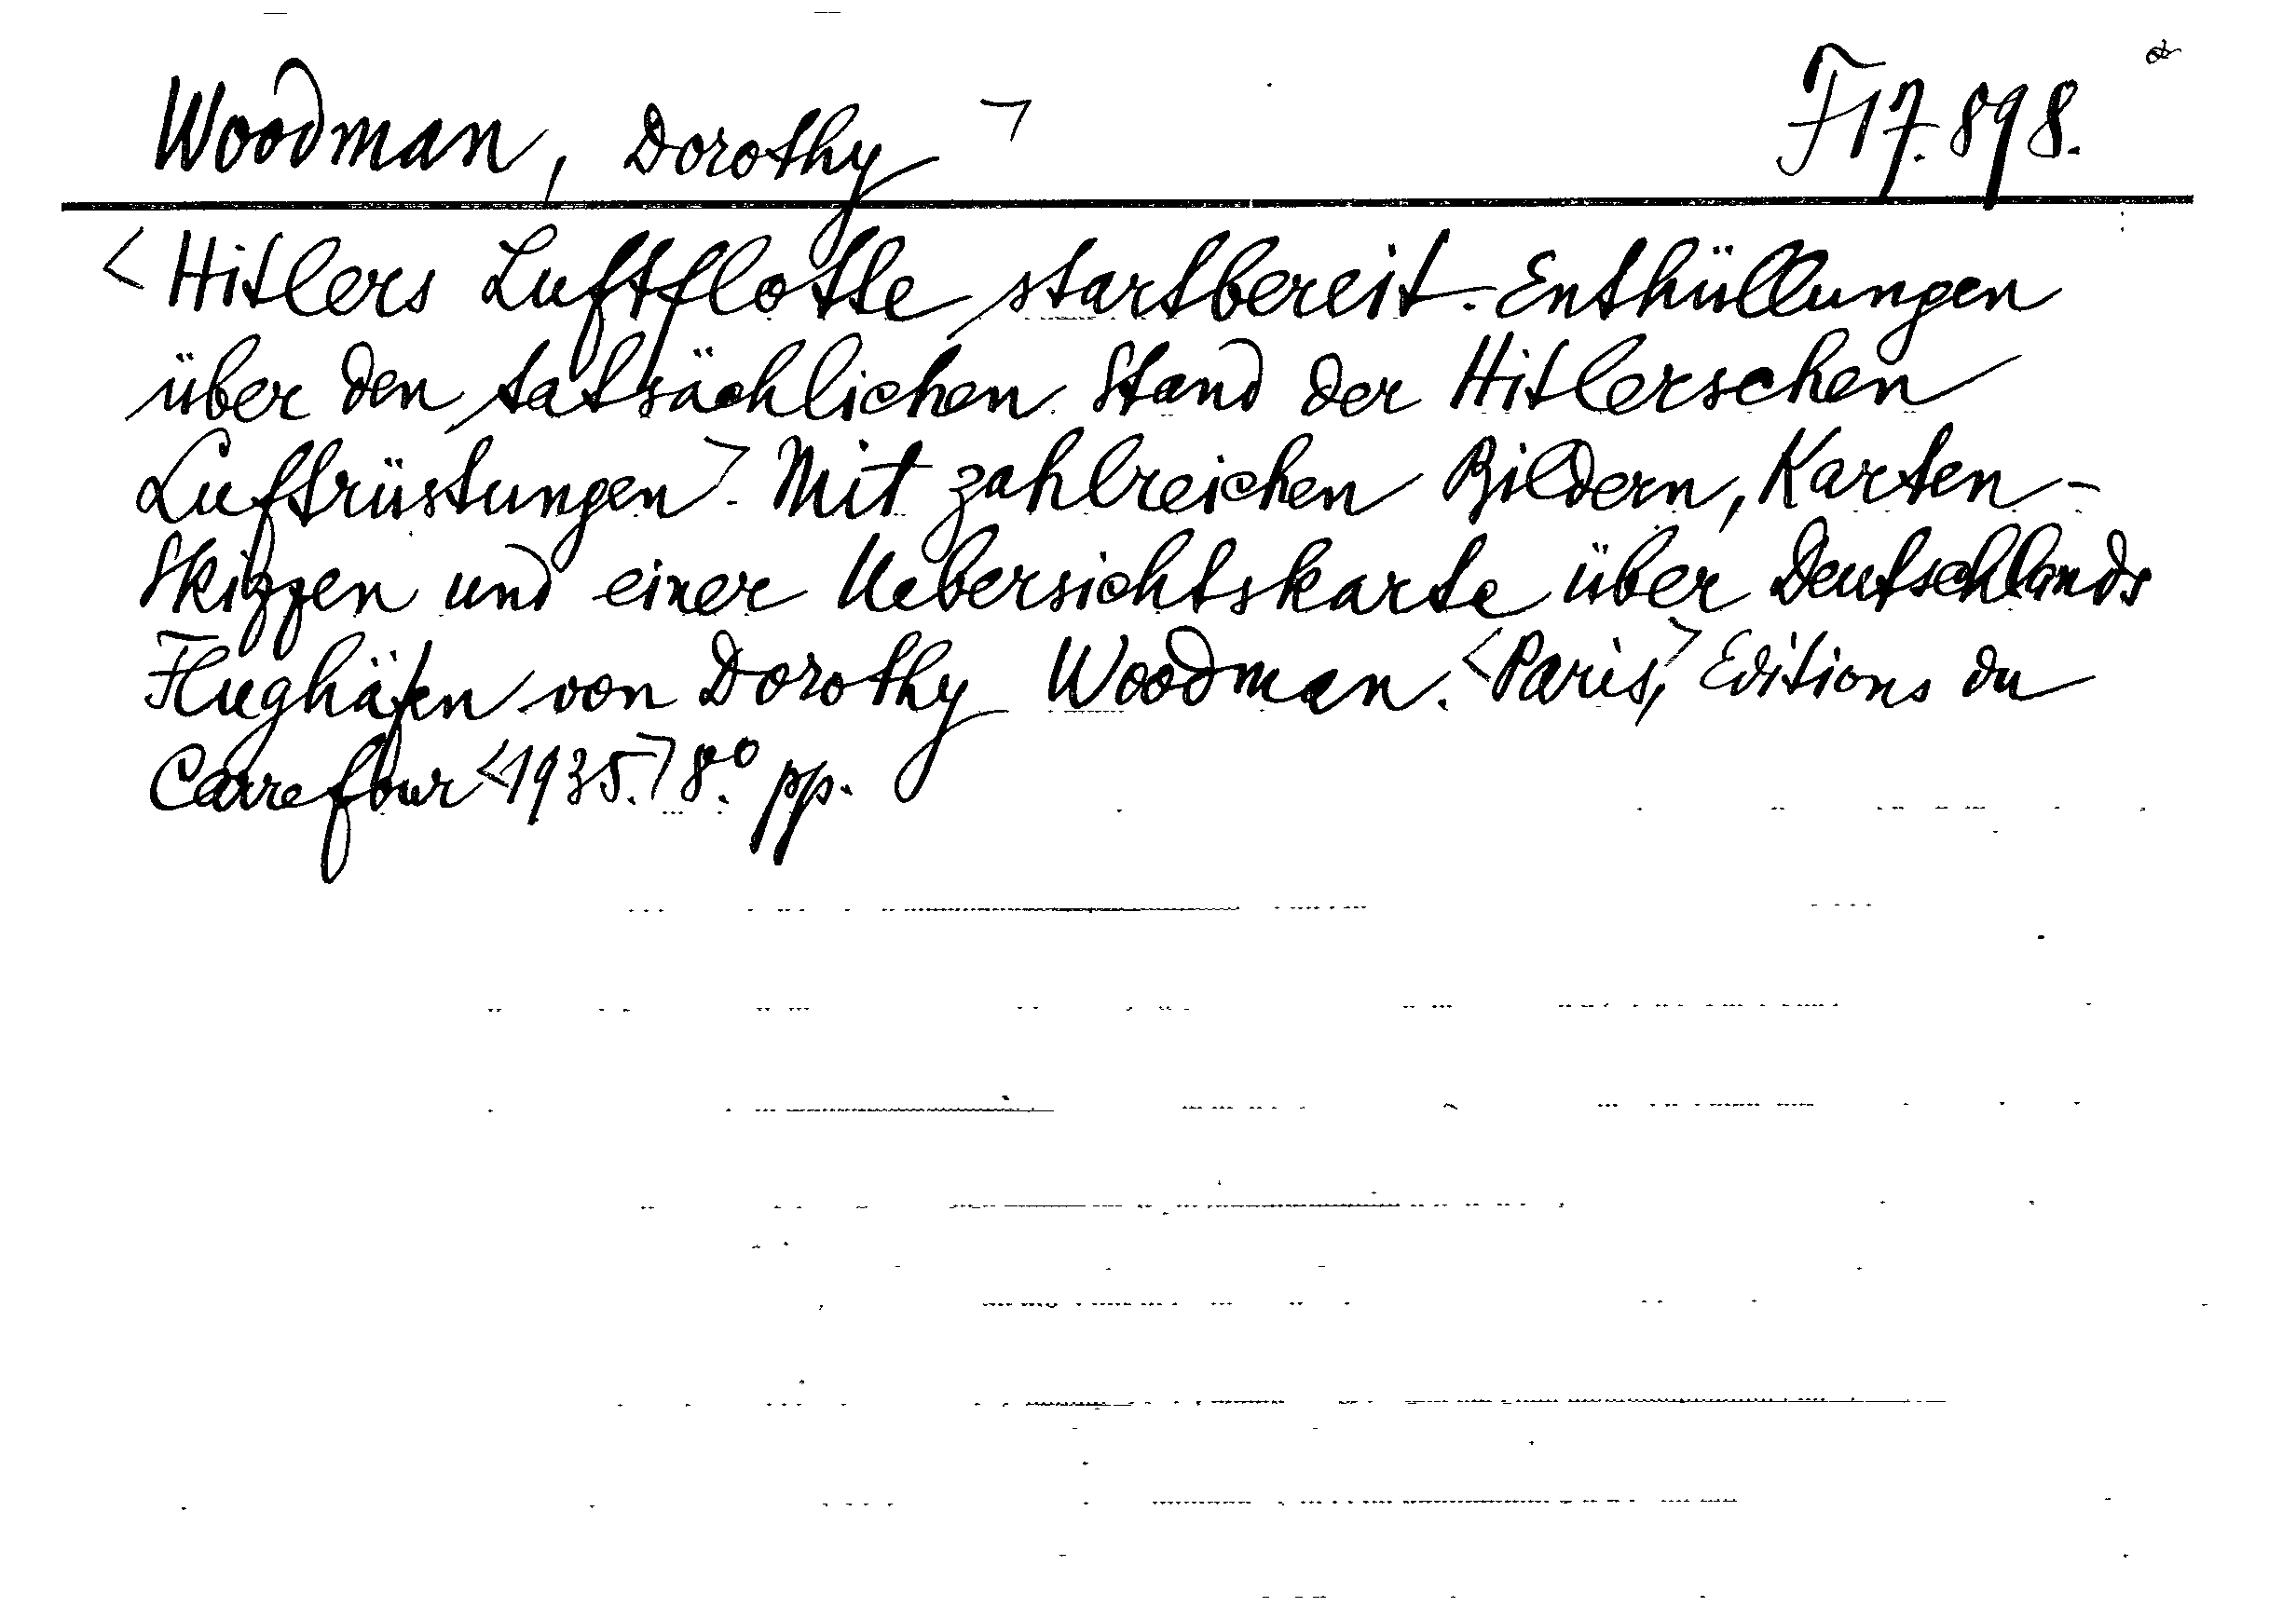 Woodman, Dorothy > F 17.898.
<Hitlers Luftflotte startbereit. Enthüllungen
über den tatsächlichen Stand der Hitlerschen
Luftrüstungen>. Mit zahlreichen Bildern, Karten-
Skizzen und einer Uebersichtskarte über Deutschlands
Flughäfen von Dorothy Woodman. <Paris,> Editions du
Carrefour <1935.> 8.° pp.